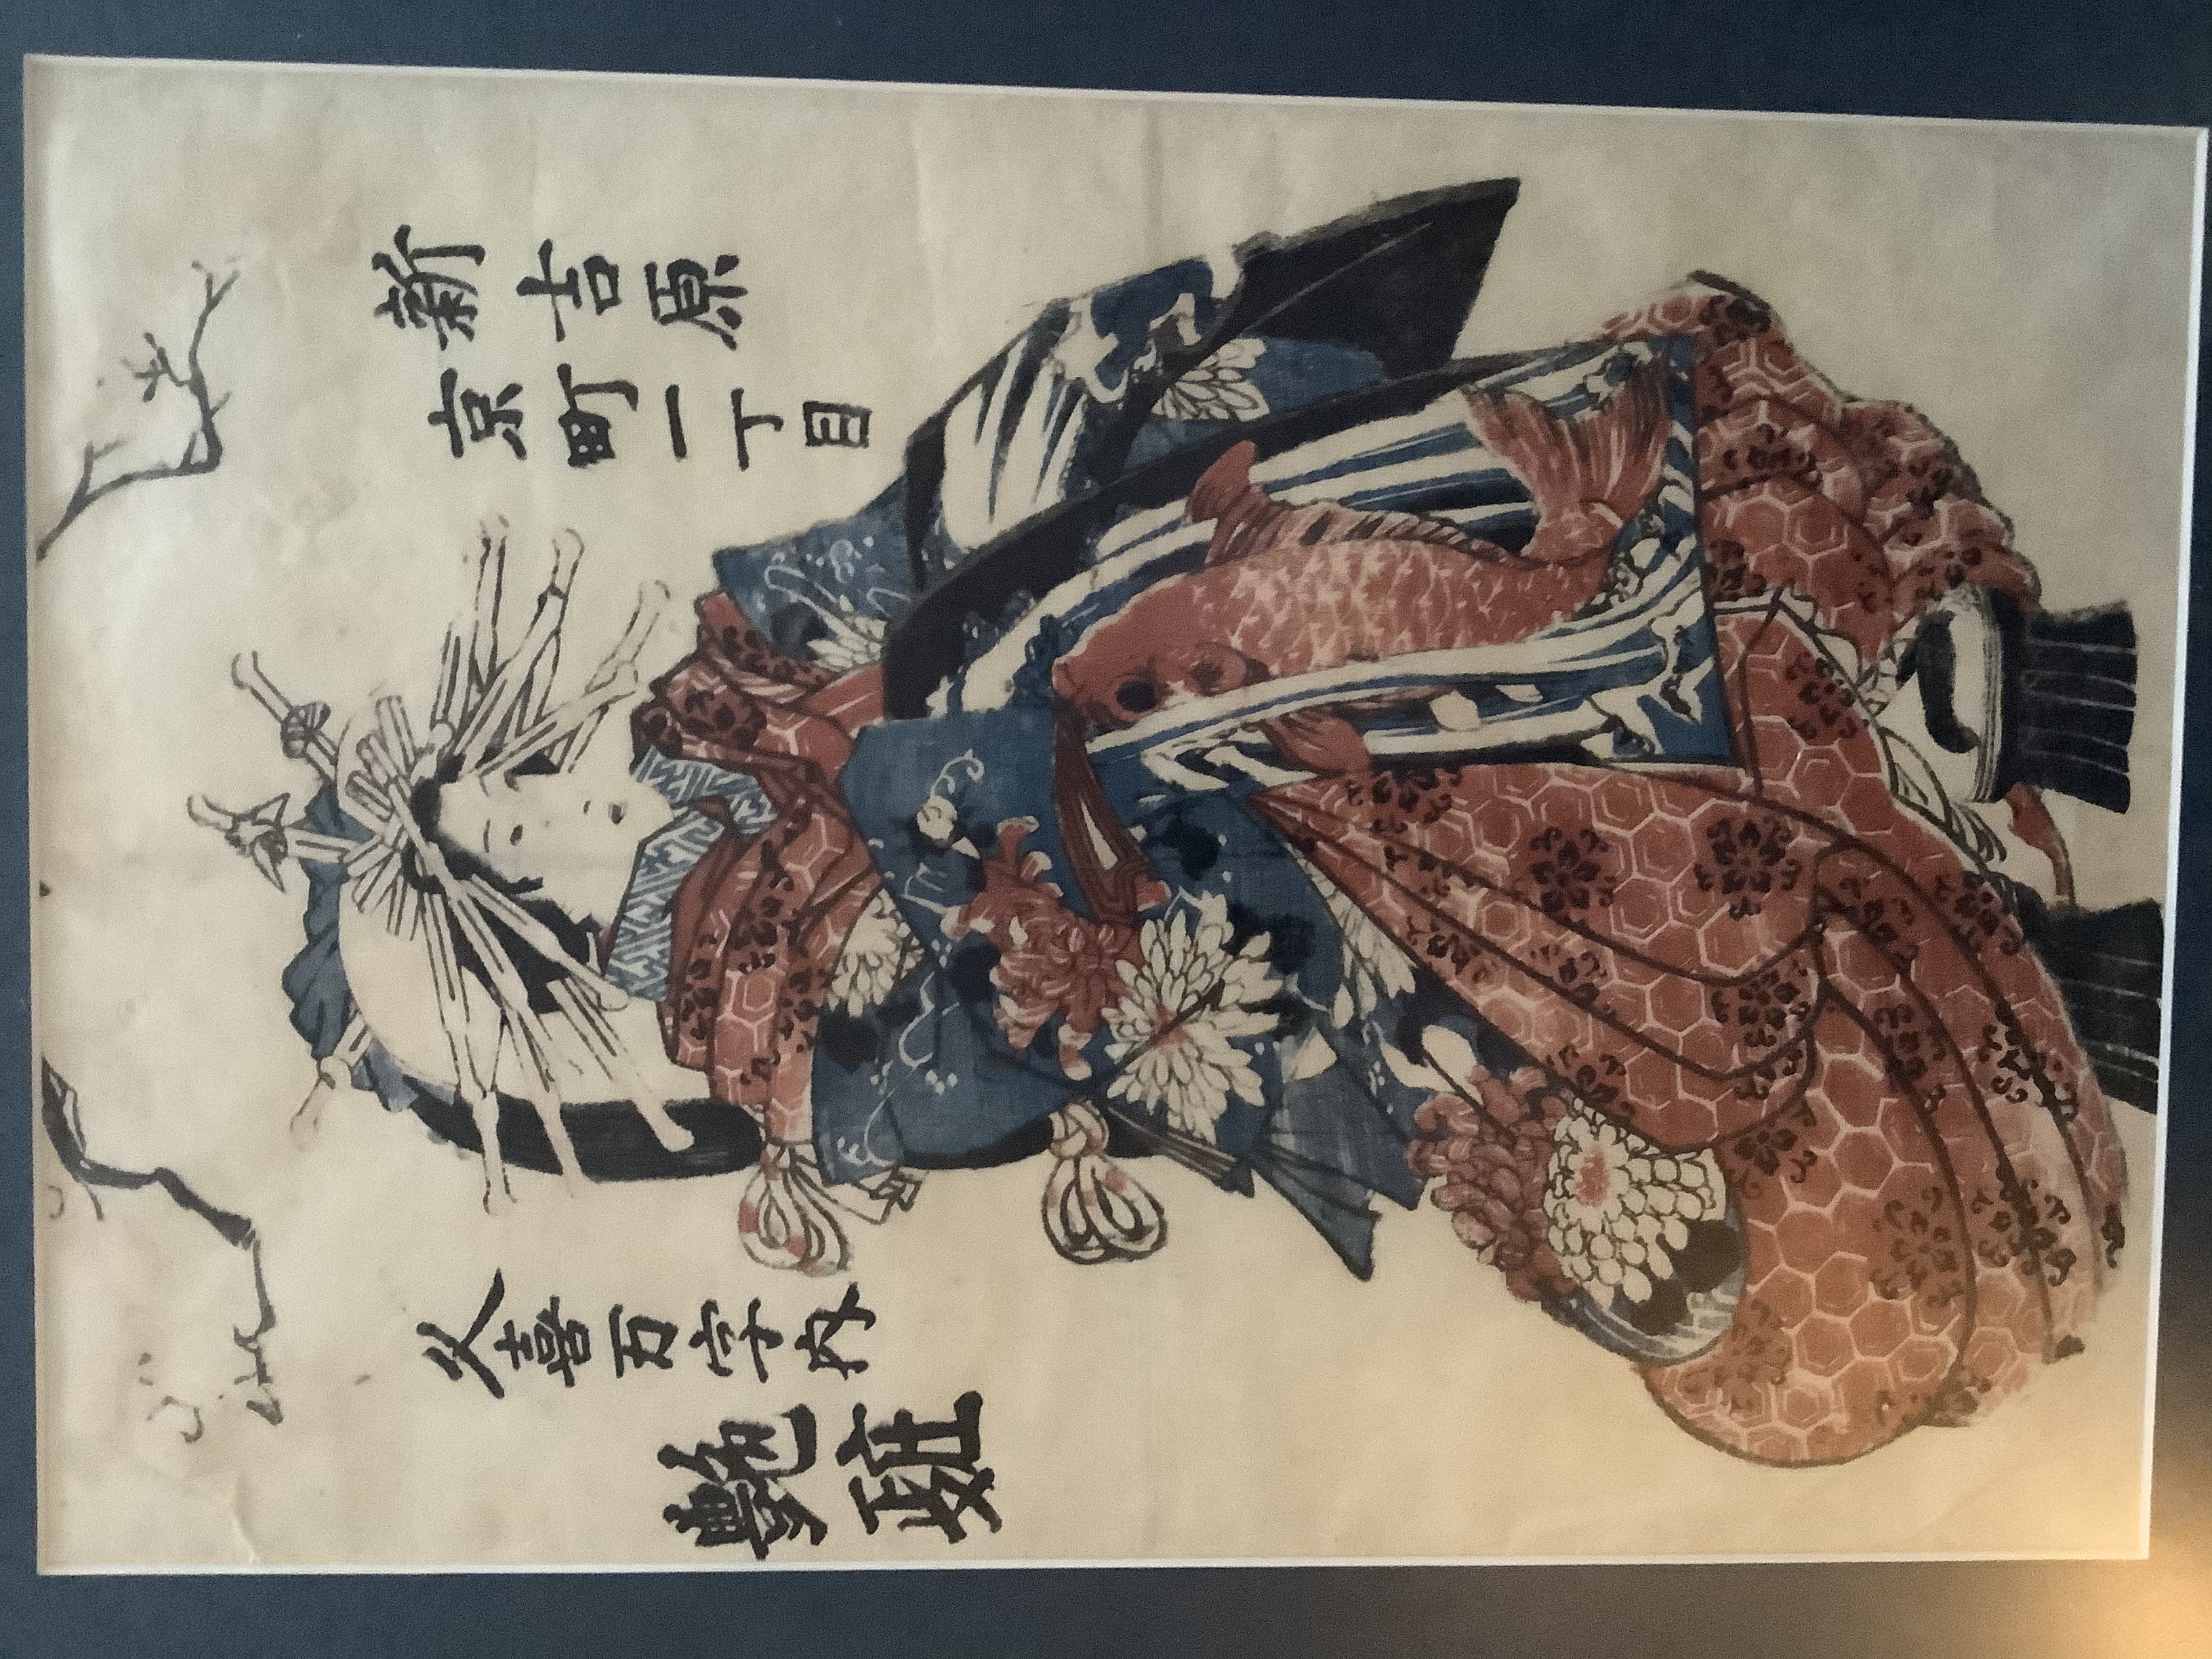 新吉原
京町一丁目
久喜万字内
艶